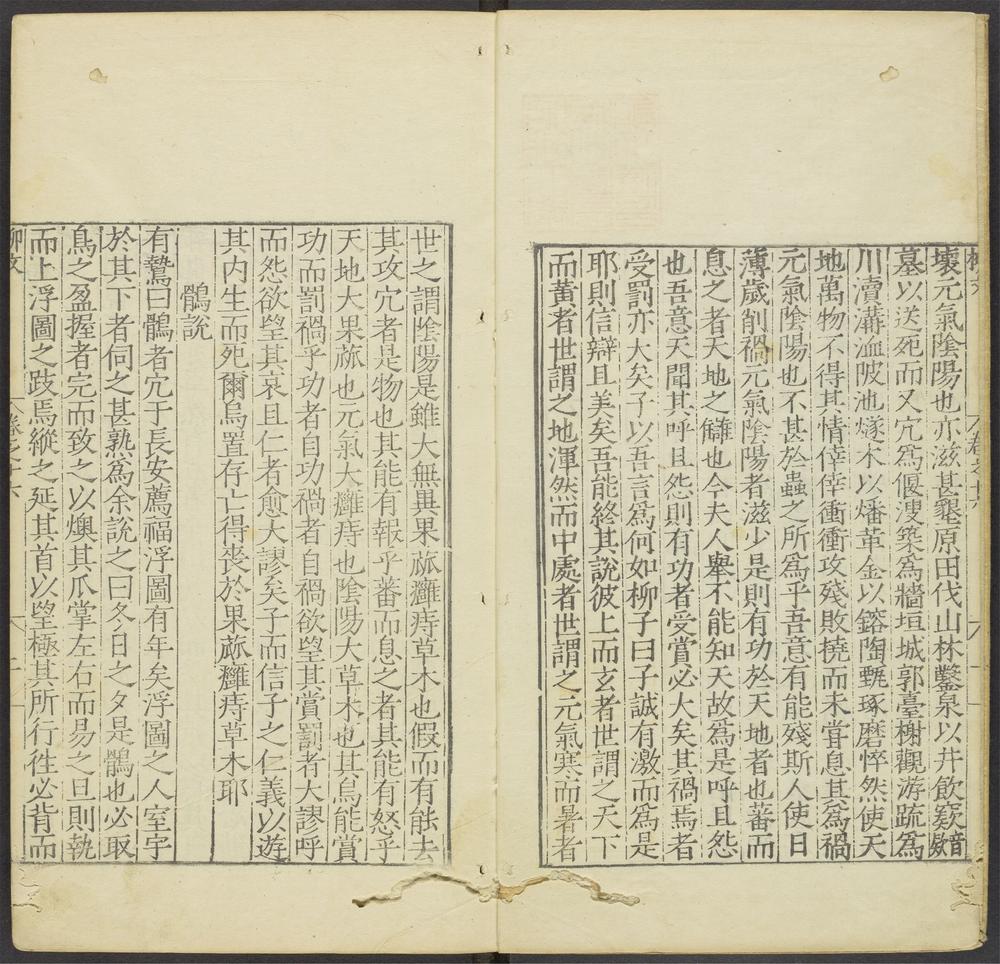 壞元氣陰陽也亦滋甚墾原田伐山林鑿泉以井飲窾
墓以送死而又穴為偃溲築為牆垣城郭臺榭觀游疏為
川瀆溝洫陂池燧木以燔革金以鎔陶甄琢磨悴然使天
地萬物不得其情倖倖衝衝攻殘敗撓而未甞息其為禍
元氣陰陽也不甚於蟲之所為乎吾意有能殘斯人使日
薄歲削禍元氣陰陽者滋少是則有功於天地者也蕃而
息之者天地之讎也今夫人舉不能知天故為是呼且怨
也吾意天聞其呼且怨則有功者受賞必大矣其禍焉者
受罰亦大矣子以吾言為何如柳子曰子誠有激而為是
耶則信辯且美矣吾能終其說彼上而玄者世謂之天下
而黃者世謂之地渾然而中處者世謂之元氣寒而暑者
世之謂陰陽是雖大無異果蓏癰痔草木也假而有能去
其攻穴者是物也其能有報乎蕃而息之者其能有怒乎
天地大果蓏也元氣大癰痔也陰陽大草木也其烏能賞
功而罰禍乎功者自功禍者自禍欲望其賞罰者大謬呼
而怨欲望其哀且仁者愈大謬矣子而信子之仁義以遊
其内生而死爾烏置存亡得喪於果蓏癰痔草木耶
鶻說
有鷙曰鶻者穴于長安薦福浮圖有年矣浮圖之人室宇
於其下者伺之甚熟為余說之曰冬日之夕是鶻也必取
鳥之盈握者完而致之以燠其爪掌左右而易之旦則執
而上浮圖之跂焉縱之延其首以望極其所行徃必背而
柳文
卷之十六
二